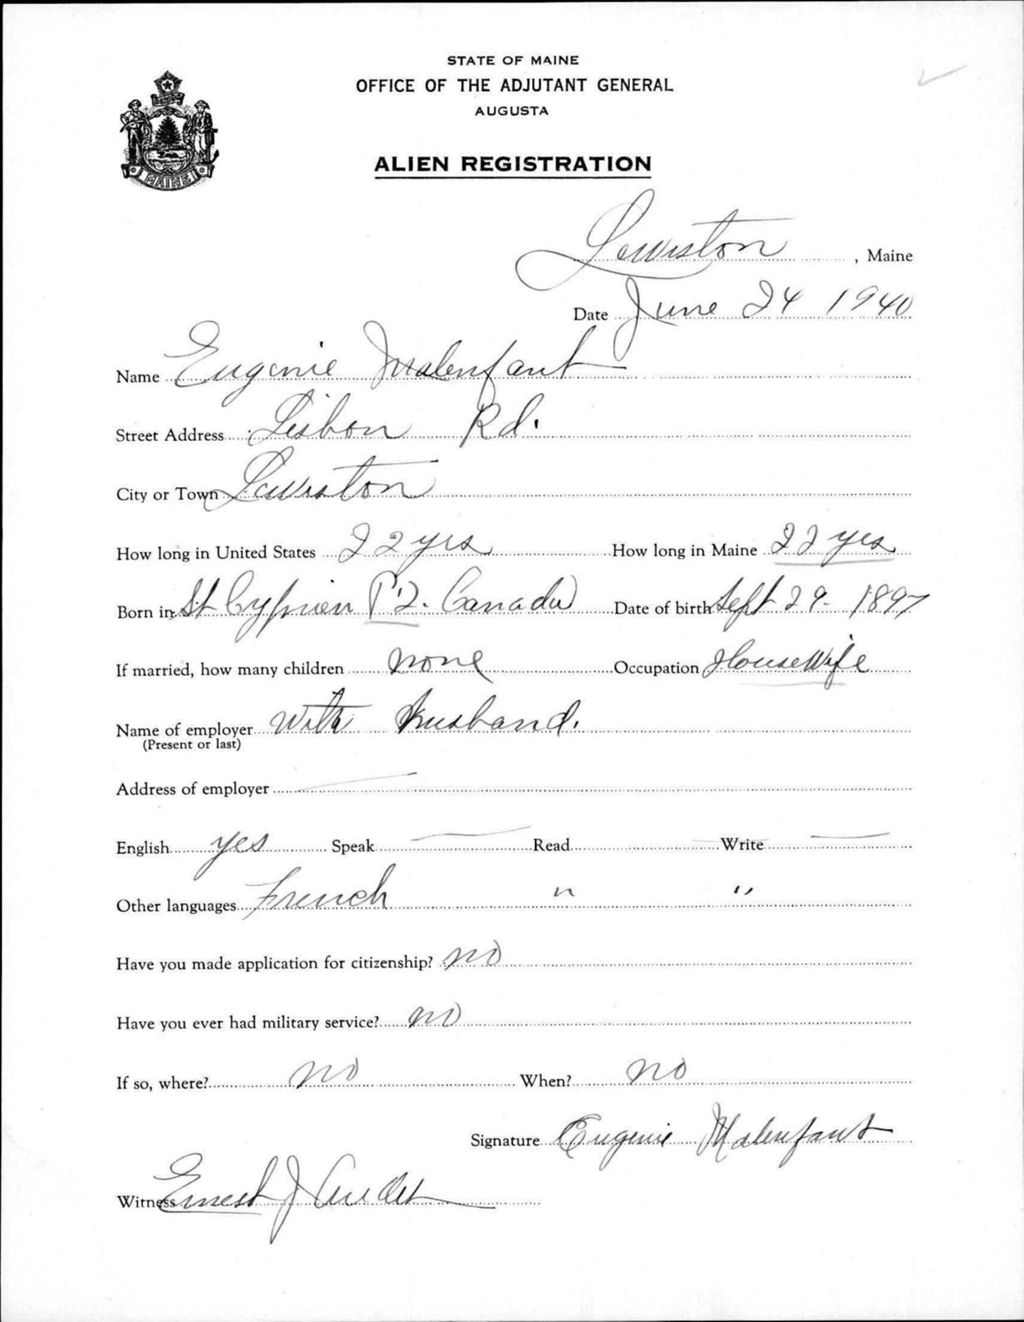 STATE OF MAINE
OFFICE OF THE ADJUTANT GENERAL
AUGUSTA
MAINE
ALIEN REGISTRATION
Lewiston, Maine
Date June 24 1940
Name Eugenie Malenfant
Street Address Lisbon Rd.
City or Town Lewiston
How long in United States 22 yrs How long in Maine 22 yrs
Born in St Cyprien P.Q. Canada Date of birth Sept 29 - 1897
If married, how many children none Occupation HouseWife
Name of employer With Husband.
(Present or last)
Address of employer —
English yes Speak — Read Write —
Other languages French " "
Have you made application for citizenship? no
Have you ever had military service? no
If so, where? no When? no
Signature Eugenie Malenfant
Witness Ernest J Audet